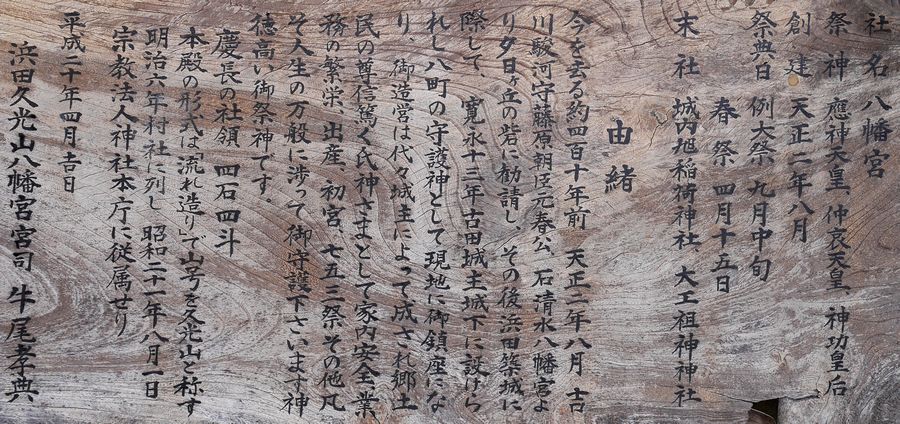 社名 八幡宮
祭神 應神天皇、仲哀天皇、神功皇后
創建 天正二年八月
祭典日 例大祭 九月中旬
春祭 四月十五日
末社 城内旭稲荷神社、大工祖神神社
由緒
今を去る約四百十年前 天正二年八月 吉
川駿河守藤原朝臣元春公、石清水八幡宮よ
り夕日丘の砦に勧請し、その後浜田築城に
際して、寛永十三年古田城主城下に設けら
れし八町の守護神として現地に御鎮座にな
り、御造営は代々城主によって成され郷土
民の尊信篤く氏神さまとして家内安全、業
務の繁栄、出産、初宮、七五三祭その他凡
そ人生の万般に渉って御守護下さいます神
徳高い御祭神です。
慶長の社領 四石四斗
本殿の形式は「流れ造り」で山号を久光山と称す
明治六年村社に列し 昭和二十一年八月一日
宗教法人神社本庁に従属せり
平成二十年四月吉日
浜田久光山八幡宮宮司 牛尾孝典